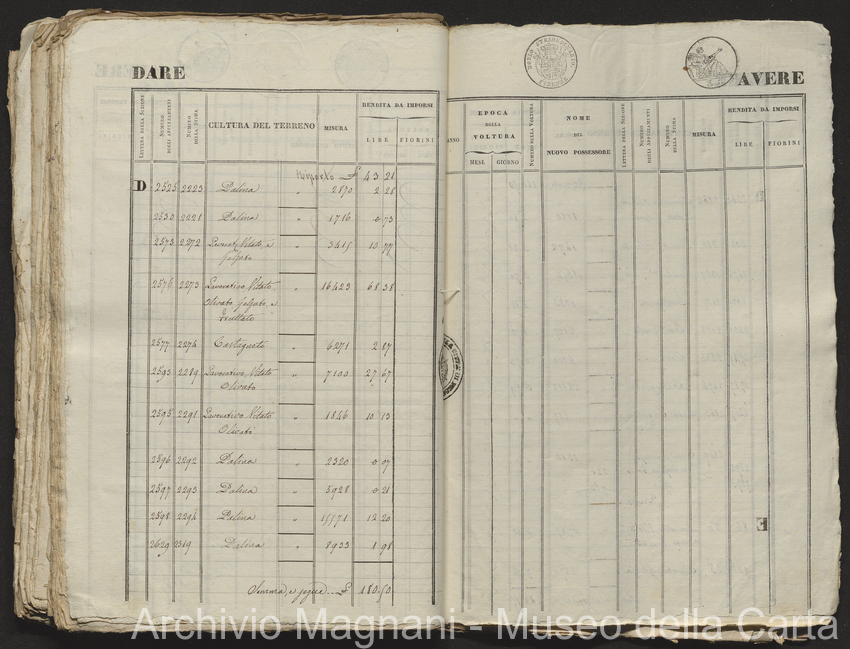 DARE
LETTERA DELLA SEZIONE
NUMERO DEGLI APPEZZAMENTI
NUMERO DELLA STIMA
CULTURA DEL TERRENO
MISURA
RENDITA DA IMPORSI
LIRE FIORINI
Riporto £ 43 21
D 2525 2223 Palina " 2870 2 28
2530 2228 Palina " 1716 0 73
2573 2272 Lavorat. Vitato, e " 3415 10 77
Gelsato
2576 2273 Lavorativo, Vitato " 16423 68 38
Olivato Gelsato, e
Fruttato
2577 2274 Castagneto " 6271 2 87
2593 2289 Lavorativo, Vitato " 7100 27 67
Olivato
2595 2291 Lavorativo Vitato " 1846 10 13
Olivato
2596 2292 Palina " 2320 0 07
2597 2293 Palina " 5928 0 21
2598 2294 Palina " 15571 12 20
2629 2319 Palina " 8933 1 98
Somma, e segue £ 180.50
AVERE
ANNO
EPOCA DELLA VOLTURA
MESE GIORNO
NUMERO DELLA VOLTURA
NOME DEL NUOVO POSSESSORE
LETTERA DELLA SEZIONE
NUMERO DEGLI APPEZZAMENTI
NUMERO DELLA STIMA
MISURA
RENDITA DA IMPORSI
LIRE FIORINI
Archivio Magnani - Museo della Carta